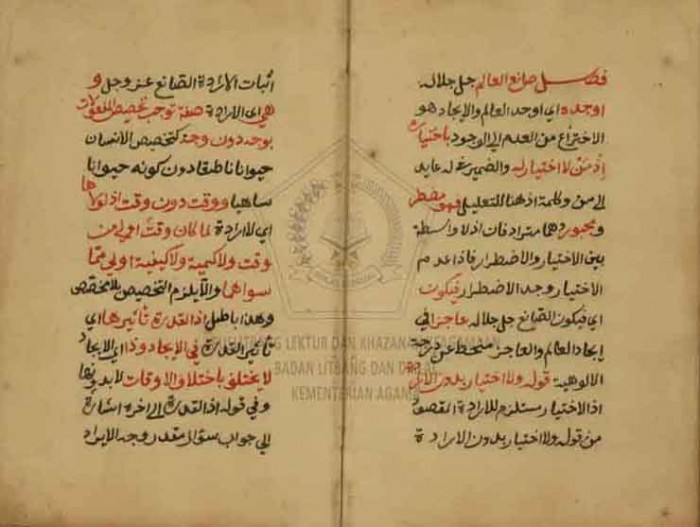 فصل صانع العالم جل جلاله
اوجده اي اوجد العالم والايجاد هو
الاختراع من العدم الى الوجود باختياره
اذ من لا اختيار له والضمير في له عايد
الى من وكلمة اذ هنا للتعليل فهو مضطر
ومجبور وهما مترادفان اذ لا واسطة
بين الاختيار والاضطرار فاذا عدم
الاختيار وجد الاضطرار فيكون
اي فيكون الصانع جل جلاله عاجزا في
ايجاد العالم والعاجز منحط عن درجة
الالوهية قوله ولا اختيار بدون الارادة
اذ الاختيار مستلزم للارادة القصد
من قوله ولا اختيار بدون الارادة
اثبات الارادة الصانع عز وجل و
هي اي الارادة صفة توجب تخصيص المفعولات
بوجه دون وجه كتخصيص الانسان
حيوانا ناطقا دون كونه حيوانا
ساهيا ووقت دون وقت اذ لولاها
اي لا ارادة لما كان وقت اولى من
وقت ولا كمية ولا كيفية اولى مما
سواهما والا يلزم التخصيص بلا مخصص
وهذا باطل اذ القدرة تأثيرها اي
تأثير القدرة في الايجاد وذا اي الايجاد
لا يختلف باختلاف الاوقات
وفي قوله اذ القدرة الى اخره اشارة
الى جواب سؤال مقدر وجه الايراد
PUSLITBANG LEKTUR DAN KHAZANAH KEAGAMAAN
BADAN LITBANG DAN DIKLAT
KEMENTERIAN AGAMA